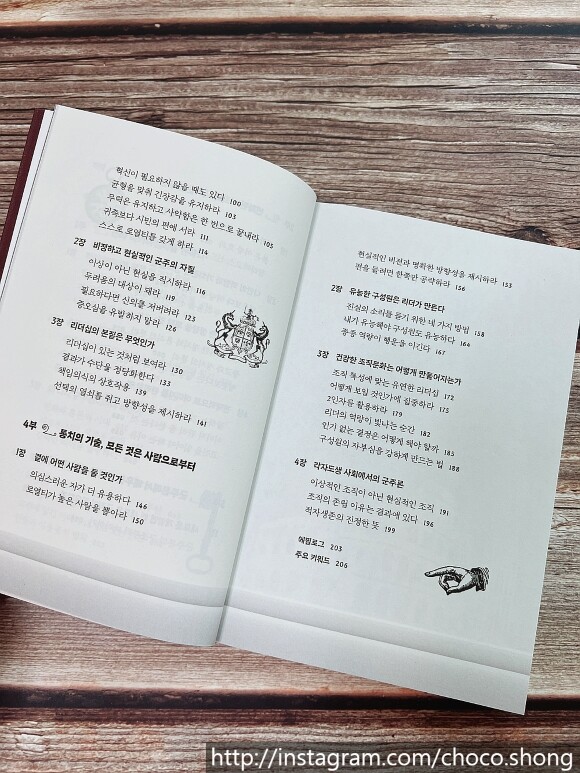 혁신이 필요하지 않을 때도 있다 100
균형을 맞춰 긴장감을 유지하라 103
무력은 유지하고 사악함은 한 번으로 끝내라 105
귀족보다 시민의 편에 서라 111
스스로 로열티를 갖게 하라 114
2장 비정하고 현실적인 군주의 자질
이상이 아닌 현실을 직시하라 116
두려움의 대상이 돼라 119
필요하다면 신의를 저버려라 123
증오심을 유발하지 말라 126
3장 리더십의 본질은 무엇인가
리더십이 있는 것처럼 보여라 130
결과가 수단을 정당화한다 133
책임의식의 상호작용 139
선택의 열쇠를 쥐고 방향성을 제시하라 141
4부 통치의 기술, 모든 것은 사람으로부터
1장 곁에 어떤 사람을 둘 것인가
의심스러운 자가 더 유용하다 146
로열티가 높은 사람을 뽑아라 150
현실적인 비전과 명확한 방향성을 제시하라 153
편을 들려면 한쪽만 공략하라 156
2장 유능한 구성원은 리더가 만든다
진실의 소리를 듣기 위한 네 가지 방법 158
내가 유능해야 구성원도 유능하다 164
종종 역량이 행운을 이긴다 167
3장 건강한 조직문화는 어떻게 만들어지는가
조직 특성에 맞는 유연한 리더십 172
어떻게 보일 것인가에 집중하라 175
2인자를 활용하라 179
리더의 역량이 빛나는 순간 182
인기 없는 결정은 어떻게 해야 할까 185
구성원의 자부심을 강하게 만드는 법 188
4장 각자도생 사회에서의 군주론
이상적인 조직이 아닌 현실적인 조직 191
조직의 존립 이유는 결과에 있다 196
적자생존의 진정한 뜻 199
에필로그 203
주요 키워드 206
http://instagram.com/choco.shong